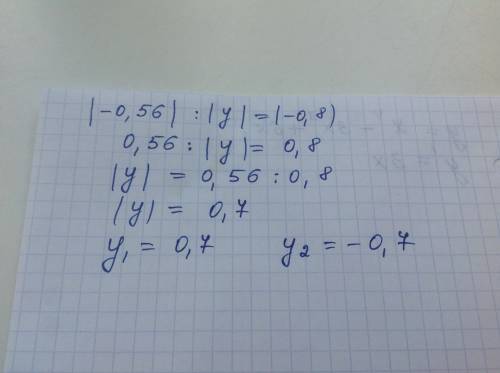 |-0,56| : |y| = |-0,8)
0,56 : |y| = 0,8
|y| = 0,56 : 0,8
|y) = 0,7
y₁ = 0,7 y₂ = -0,7